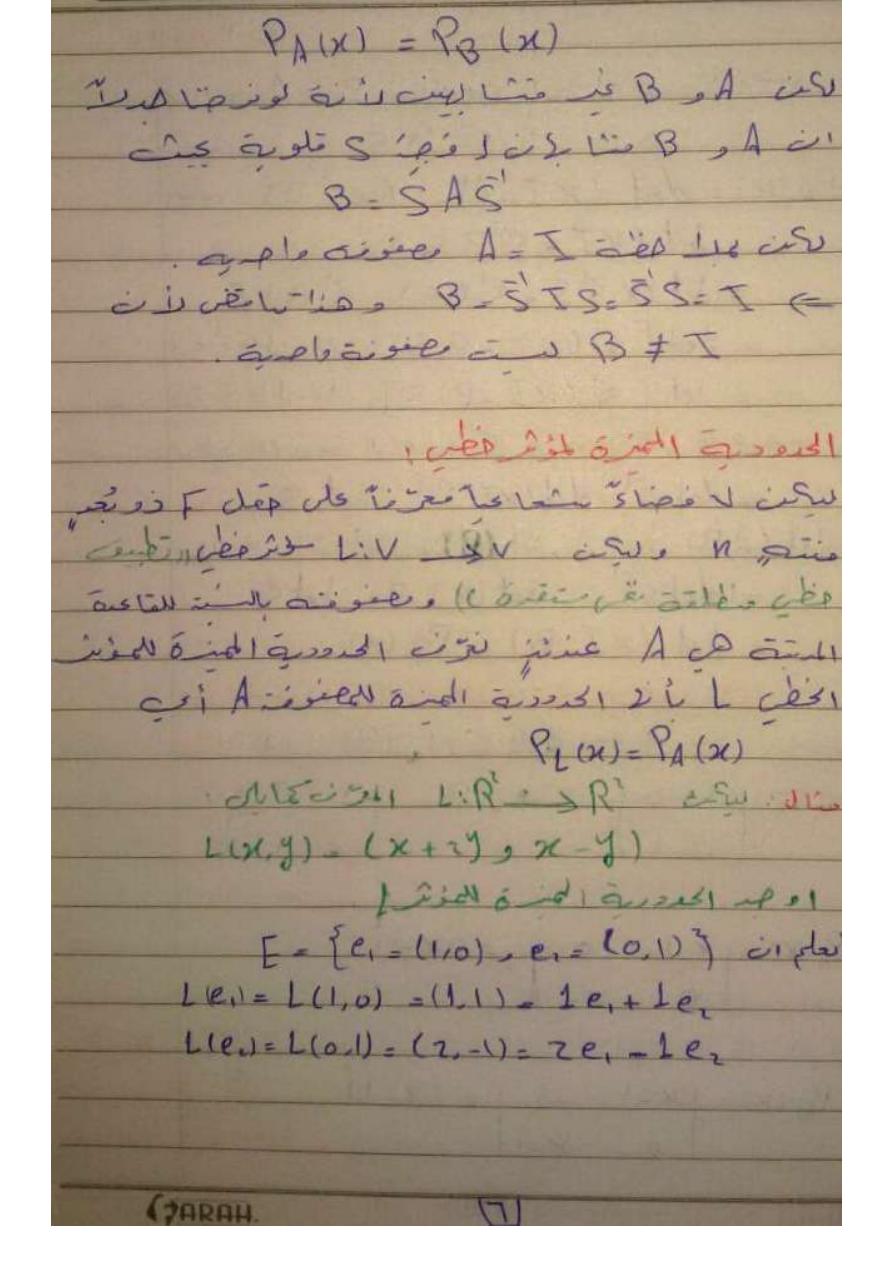 P_A(x) = P_B(x)
لكن A و B غير متشابهين لأنة لو فرضنا جدلاً
ان A و B متشابهان فـ S قلوبة بحيث
B = S A S⁻¹
لكن بملاحظة A = I مصفوفه واحديه .
⇒ B = S⁻¹ I S = S⁻¹ S = I وهذا تناقض لأن
B ≠ I ليست مصفوفة واحدية .
الحدودية المميزة لمؤثر خطي :
ليكن V فضاءً شعاعياً معرّفاً على حقل F ذو بُعدٍ
منتهٍ n وليكن L: V → V مؤثر خطي ((تطبيق
خطي منطلقة مستقرة )) ومصفوفته بالنسبة للقاعدة
هي A عندئذٍ نعرّف الحدودية المميزة للمؤثر
الخطي L بأنها الحدودية المميزة للمصفوفة A أي
P_L(x) = P_A(x)
مثال : ليكن L: R² → R² المعرّف كمايلي :
L(x,y) = (x+2y , x-y)
اوجد الحدودية المميزة للمؤثر L
نعلم ان E = {e₁ = (1,0) , e₂ = (0,1)}
L(e₁) = L(1,0) = (1,1) = 1e₁ + 1e₂
L(e₂) = L(0,1) = (2,-1) = 2e₁ - 1e₂
FARAH.